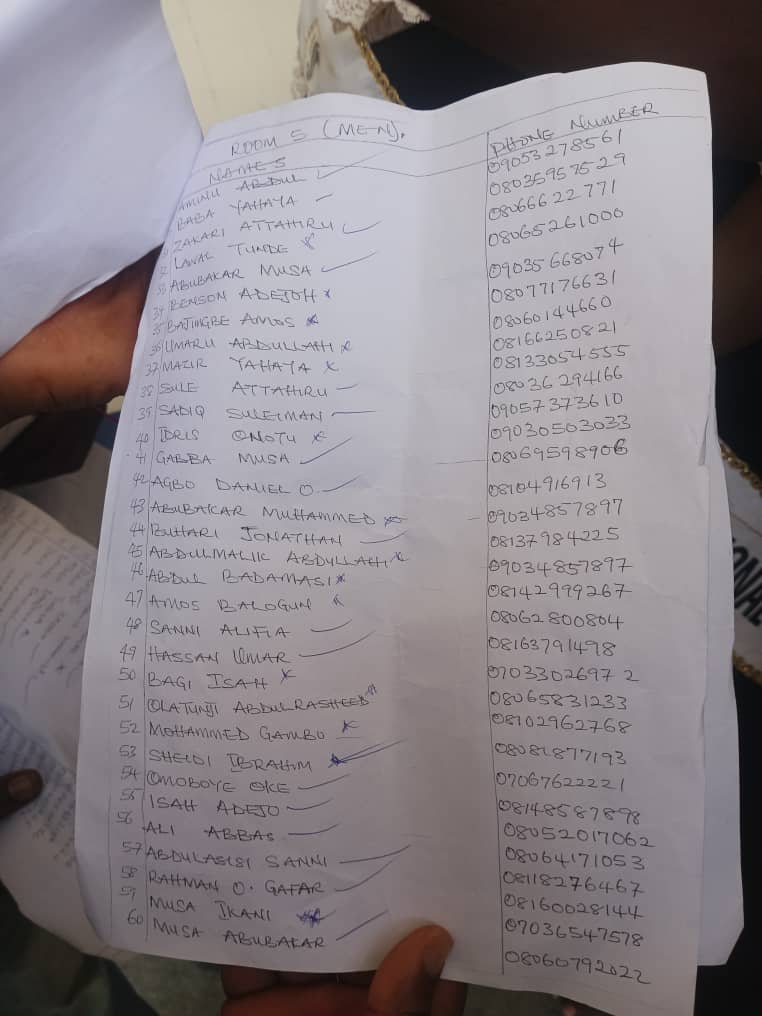 ROOM 5 (MEN).
NAMES PHONE NUMBER
AMINU ABDUL 09053278561
BABA YAHAYA 08035957529
ZAKARI ATTAHIRU 08066622771
LAWAL TUNDE 08065261000
33 ABUBAKAR MUSA 09035668074
34 BENSON ADEJOH 08077176631
35 BAJINGBE AMOS 08060144660
36 UMARU ABDULLAHI 08166250821
37 MAZIR YAHAYA 08133054555
38 SULE ATTAHIRU 08036294166
39 SADIQ SULEIMAN 09057373610
40 IDRIS ONOTU 09030503033
41 GABBA MUSA 08069598906
42 AGBO DANIEL O. 08104916913
43 ABUBAKAR MUHAMMED 09034857897
44 BUHARI JONATHAN 08137984225
45 ABDULMALIK ABDULLAHI 09034857897
46 ABDUL BADAMASI 08142999267
47 AMOS BALOGUN 08062800804
48 SANNI ALIFIA 08163791498
49 HASSAN UMAR 07033026972
50 BAGI ISAH 08065831233
51 OLATUNJI ABDULRASHEED 08102962768
52 MOHAMMED GAMBO
53 SHEIDI IBRAHIM 07067622221
54 OMOBOYE OKE 08148587898
55 ISAH ADEJO 08052017062
56 ALI ABBAS 08064171053
57 ABDULASISI SANNI 08118276467
58 RAHMAN O. GAFAR 08160028144
59 MUSA IKANI 07036547578
60 MUSA ABUBAKAR 08060792022